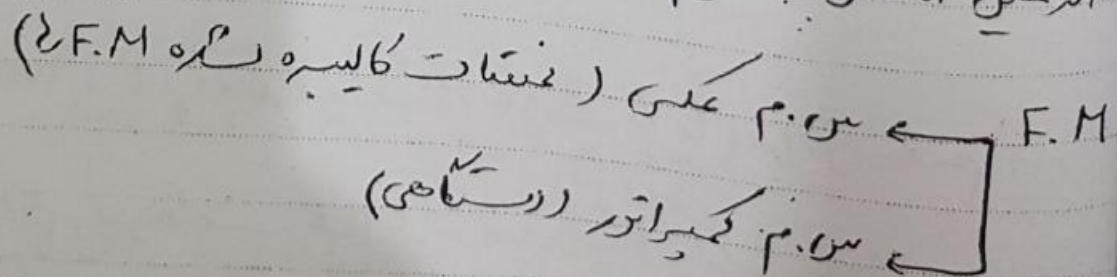 F.M ← س.م عکسی (مختصات کالیبره شده F.M ها)
← س.م کمپراتور (دستگاهی)